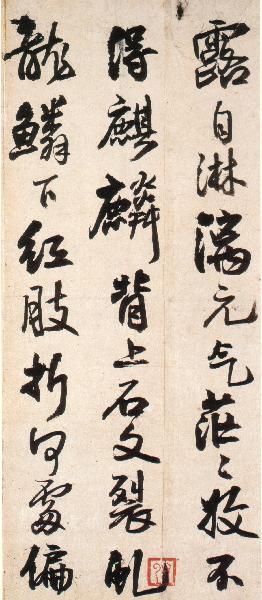 露自淋漓元气茫〻收不
得麒麟背上石文裂虬
龍鱗下紅肢折何處偏